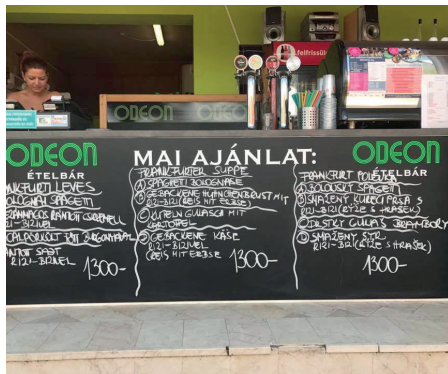 .felfrissül
ODEON
ODEON
ODEON
ÉTELBÁR
MAI AJÁNLAT:
ODEON
ÉTELBÁR
NKFURTI LEVES
BOLOGNAI SPAGETTI
RIZI-BIZIVEL
RÁNTOTT SAJT
RIZI-BIZIVEL
1300-
FRANKFURTER SUPPE
A SPAGHETTI BOLOGNASE
B GEBACKENE HÜHNCHENBRUST MIT
RIZI-BIZI (REIS MIT ERBSE)
C KUTELN GULASCH MIT
KARTOFFEL
D GEBACKENE KÄSE
RIZI-BIZIVEL
(REIS MIT ERBSE
1300-
FRANKFURT POLÉVKA
A BOLOŇSKÝ SPAGETTI
B SMAŽENÝ KUŘECÍ PRSA S
RIZI-BIZI (RÝŽE S HRÁŠEK)
C DRŠTKY GULÁŠ BRAMBORY
D SMAŽENÝ SÝR
RIZI-BIZI (RÝŽE S HRÁŠEK)
1300-